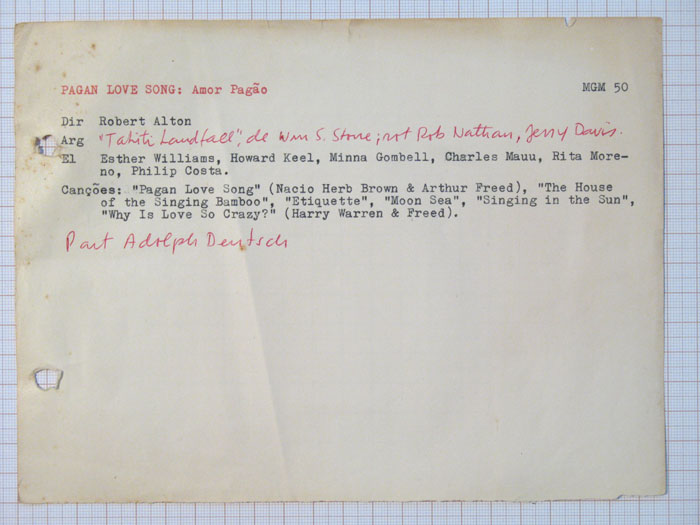 PAGAN LOVE SONG: Amor Pagão MGM 50
Dir Robert Alton
Arg "Tahiti Landfall", de Wm S. Stone; rot Rob Nathan, Jerry Davis.
El Esther Williams, Howard Keel, Minna Gombell, Charles Mauu, Rita More-
no, Philip Costa.
Canções: "Pagan Love Song" (Nacio Herb Brown & Arthur Freed), "The House
of the Singing Bamboo", "Etiquette", "Moon Sea", "Singing in the Sun",
"Why Is Love So Crazy?" (Harry Warren & Freed).
Part Adolph Deutsch